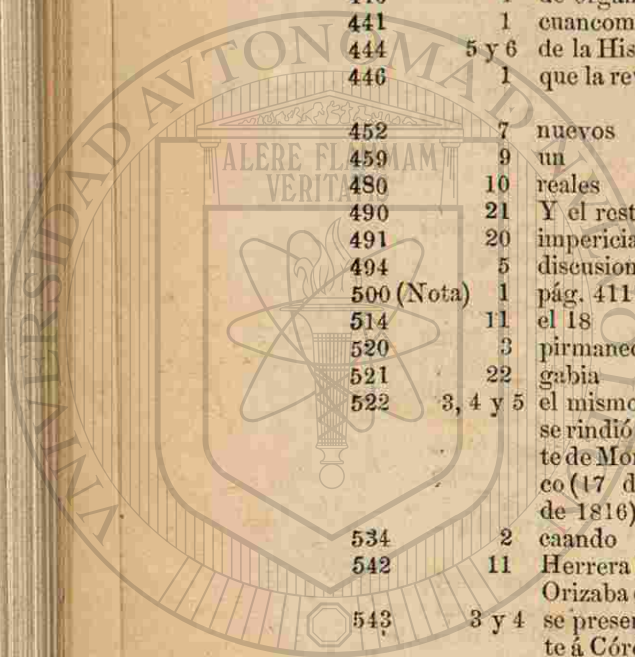 441 1 cuancom
444 5 y 6 de la His
446 1 que la re
452 7 nuevos
459 9 un
480 10 reales
490 21 Y el rest
491 20 impericia
494 5 discusion
500 (Nota) 1 pág. 411
514 11 el 18
520 3 pirmanec
521 22 gabia
522 3, 4 y 5 el mismo
se rindió
te de Mon
co (17 d
de 1816)
534 2 caando
542 11 Herrera
Orizaba
543 3 y 4 se presen
te á Córd
ALERE FLAMMAM
VERITATIS